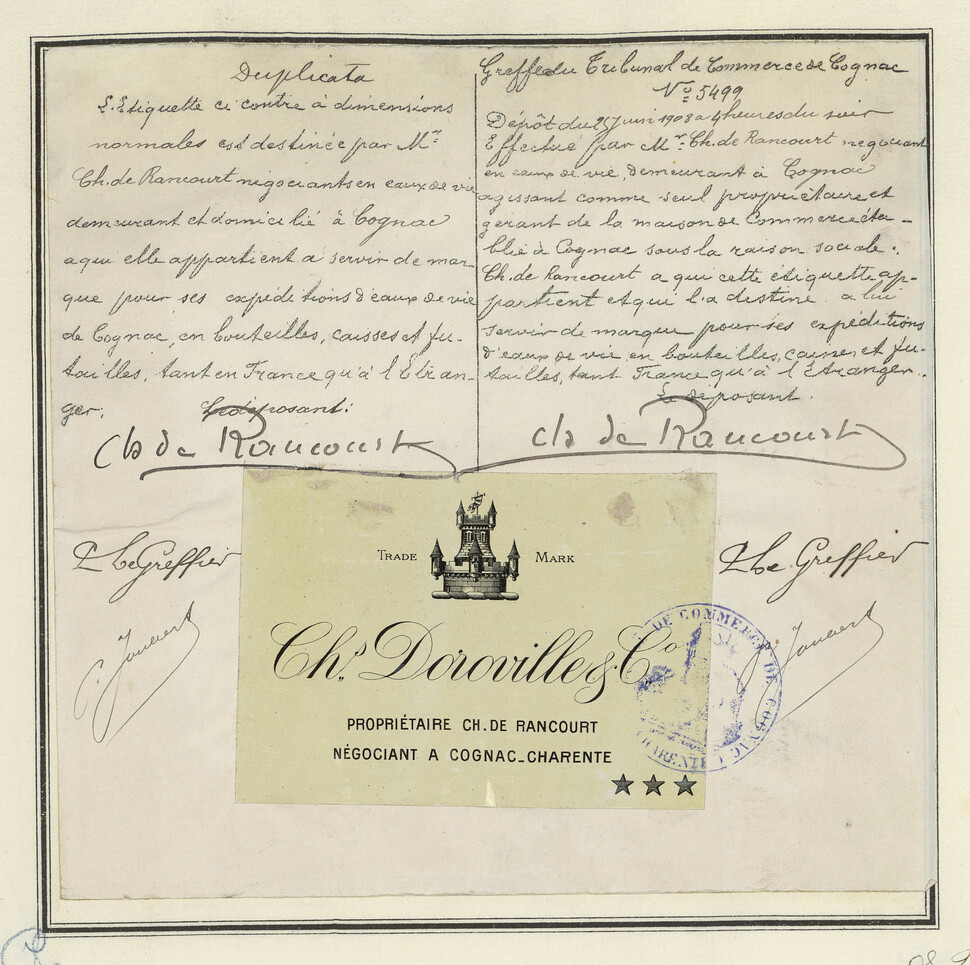 Duplicata
L'Etiquette ci contre à dimensions
normales est destinée par Mr
Ch. de Rancourt négociants en eaux de vie
demeurant et domicilié à Cognac
a qui elle appartient a servir de mar-
que pour ses expéditions d'eaux de vie
de Cognac, en bouteilles, caisses et fu-
tailles, tant en France qu'à l'Etran-
ger.
Le déposant:
Ch de Rancourt
Le Greffier
Greffe du Tribunal de Commerce de Cognac
No 5499
Dépôt du Juin 1908 a 4 heures du soir
Effectué par Mr Ch. de Rancourt négociant
en eaux de vie, demeurant à Cognac
agissant comme seul propriétaire et
gérant de la maison de Commerce éta-
blie à Cognac sous la raison sociale.
Ch. de Rancourt a qui cette étiquette ap-
partient et qui l'a destiné a lui
servir de marque pour ses expéditions
d'eaux de vie en bouteilles, caisses et fu-
tailles, tant France qu'à l'Etranger.
Le déposant.
Ch de Rancourt
Le Greffier
TRADE MARK
Chs. Doroville & Co
PROPRIÉTAIRE CH. DE RANCOURT
NÉGOCIANT A COGNAC_CHARENTE
DE COMMERCE DE COGNAC
CHARENTE